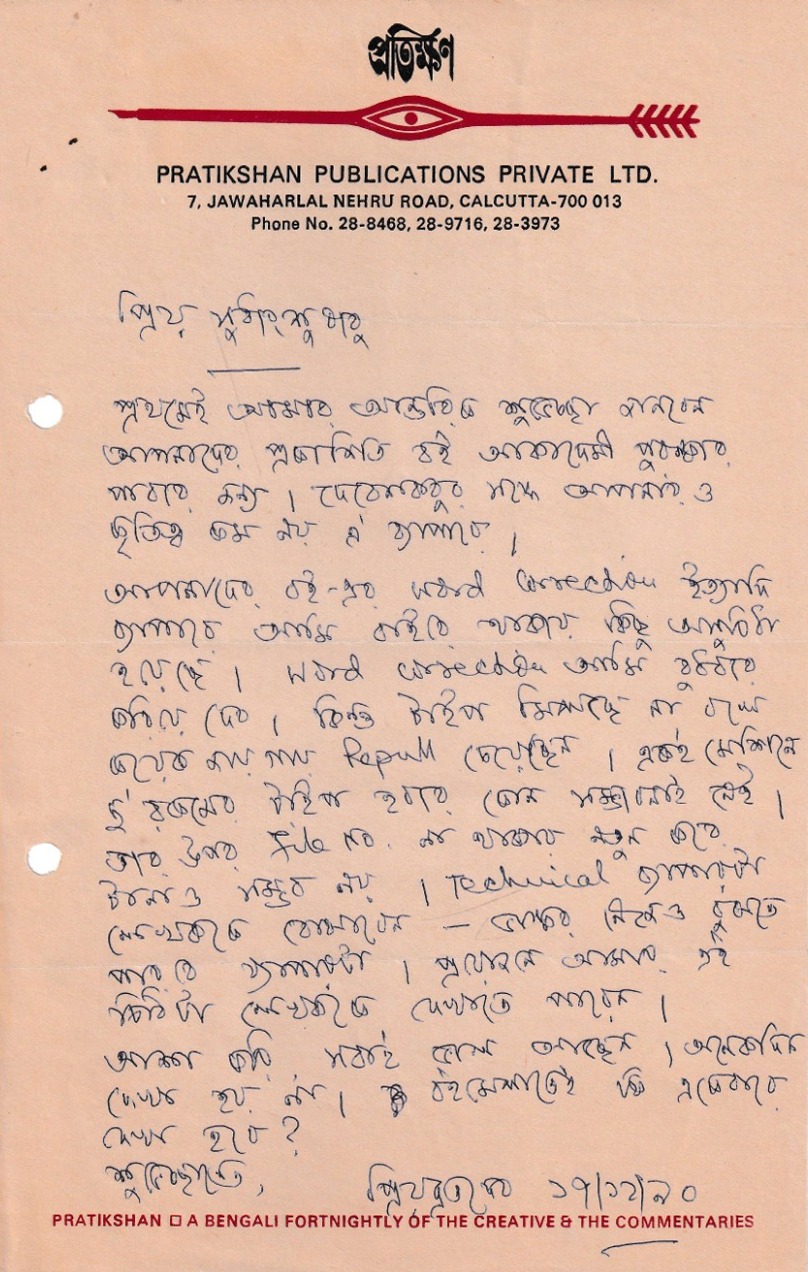 প্রতিক্ষণ
PRATIKSHAN PUBLICATIONS PRIVATE LTD.
7, JAWAHARLAL NEHRU ROAD, CALCUTTA-700 013
Phone No. 28-8468, 28-9716, 28-3973
প্রিয় সুধাংশুবাবু
প্রথমেই আমার আন্তরিক শুভেচ্ছা জানবেন
আপনাদের প্রকাশিত বই আকাদেমী পুরস্কার
পাবার জন্য। দেবেশবাবুর সঙ্গে আপনারও
কৃতিত্ব কম নয় এ ব্যাপারে।
আপনাদের বই-এর word correction ইত্যাদি
ব্যাপারে আমি বাইরে থাকায় কিছু অসুবিধা
হয়েছে। Word correction আমি বুধবারে
করিয়ে দেব। কিন্তু টাইপ মিলছে না বলে
কয়েক জায়গায় Repull চেয়েছেন। একই মেশিনে
দু রকমের টাইপ হবার কোন সম্ভাবনাই নেই।
তার উপর File no. না থাকায় নতুন করে
টানাও সম্ভব নয়। Technical ব্যাপারটা
লেখককে বোঝাবেন — নিজেও বুঝতে
পারবে ব্যাপারটা। প্রয়োজনে আমার এই
চিঠিটা লেখককে দেখাতে পারেন।
আশা করি সবাই ভাল আছেন। অনেকদিন
দেখা হয় না। বইমেলাতেই কি একেবারে
দেখা হবে?
শুভেচ্ছান্তে,
প্রিয়ব্রত দেব ১৭/১২/৯০
PRATIKSHAN □ A BENGALI FORTNIGHTLY OF THE CREATIVE & THE COMMENTARIES